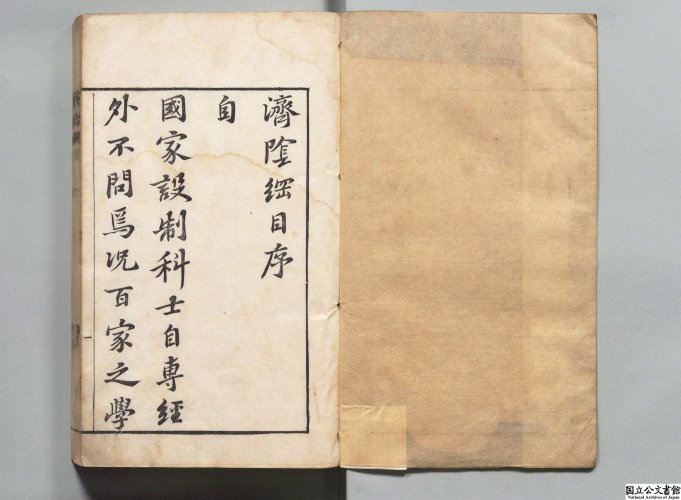 濟陰綱目序
自
國家設制科士自專經
外不問焉况百家之學
国立公文書館
National Archives of Japan